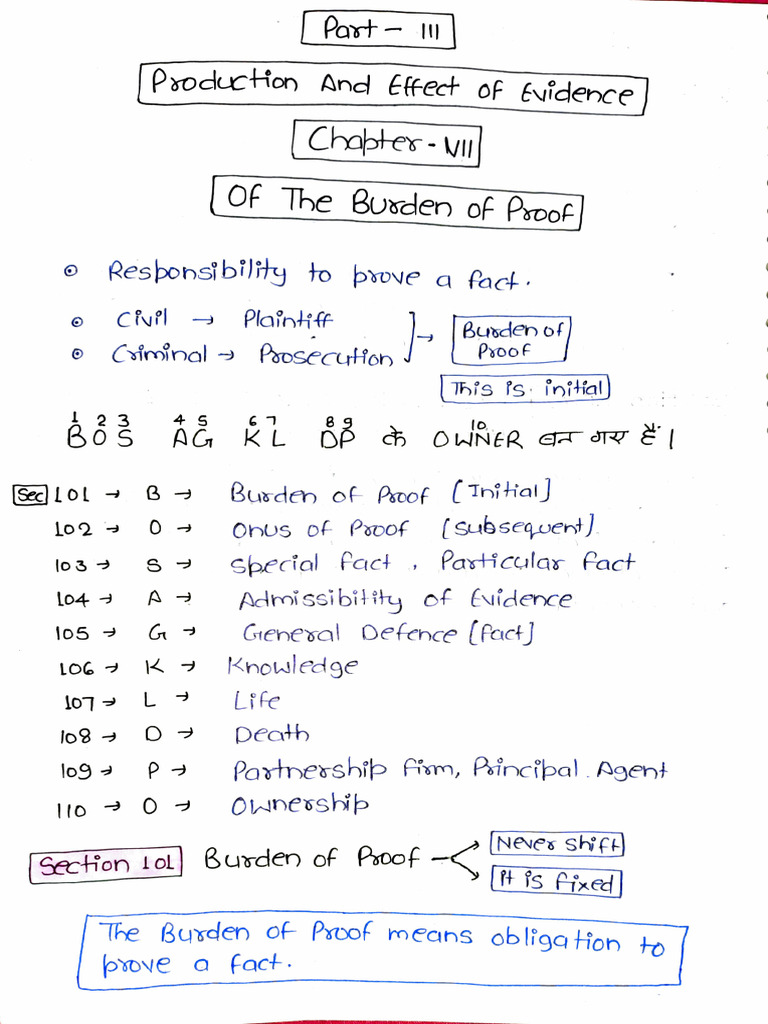 Part - III
Production And Effect of Evidence
Chapter - VII
Of The Burden of Proof
Responsibility to prove a fact.
Civil → Plaintiff
Criminal → Prosecution
→ Burden of Proof
This is initial
1 2 3 4 5 6 7 8 9 10
BOS AG KL DP के OWNER बन गए हैं।
Sec 101 → B → Burden of Proof [Initial]
102 → O → Onus of Proof [Subsequent].
103 → S → Special fact, Particular fact
104 → A → Admissibitity of Evidence
105 → G → General Defence [fact]
106 → K → Knowledge
107 → L → Life
108 → D → Death
109 → P → Partnership firm, Principal. Agent
110 → O → Ownership
Section 101 Burden of Proof
Never shift
It is fixed
The Burden of Proof means obligation to
prove a fact.